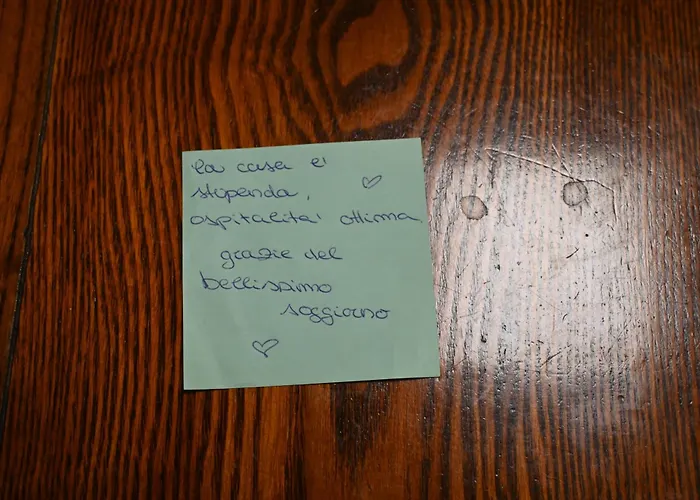 la casa e'
stupenda,
ospitalita' ottima
grazie del
bellissimo
soggiorno